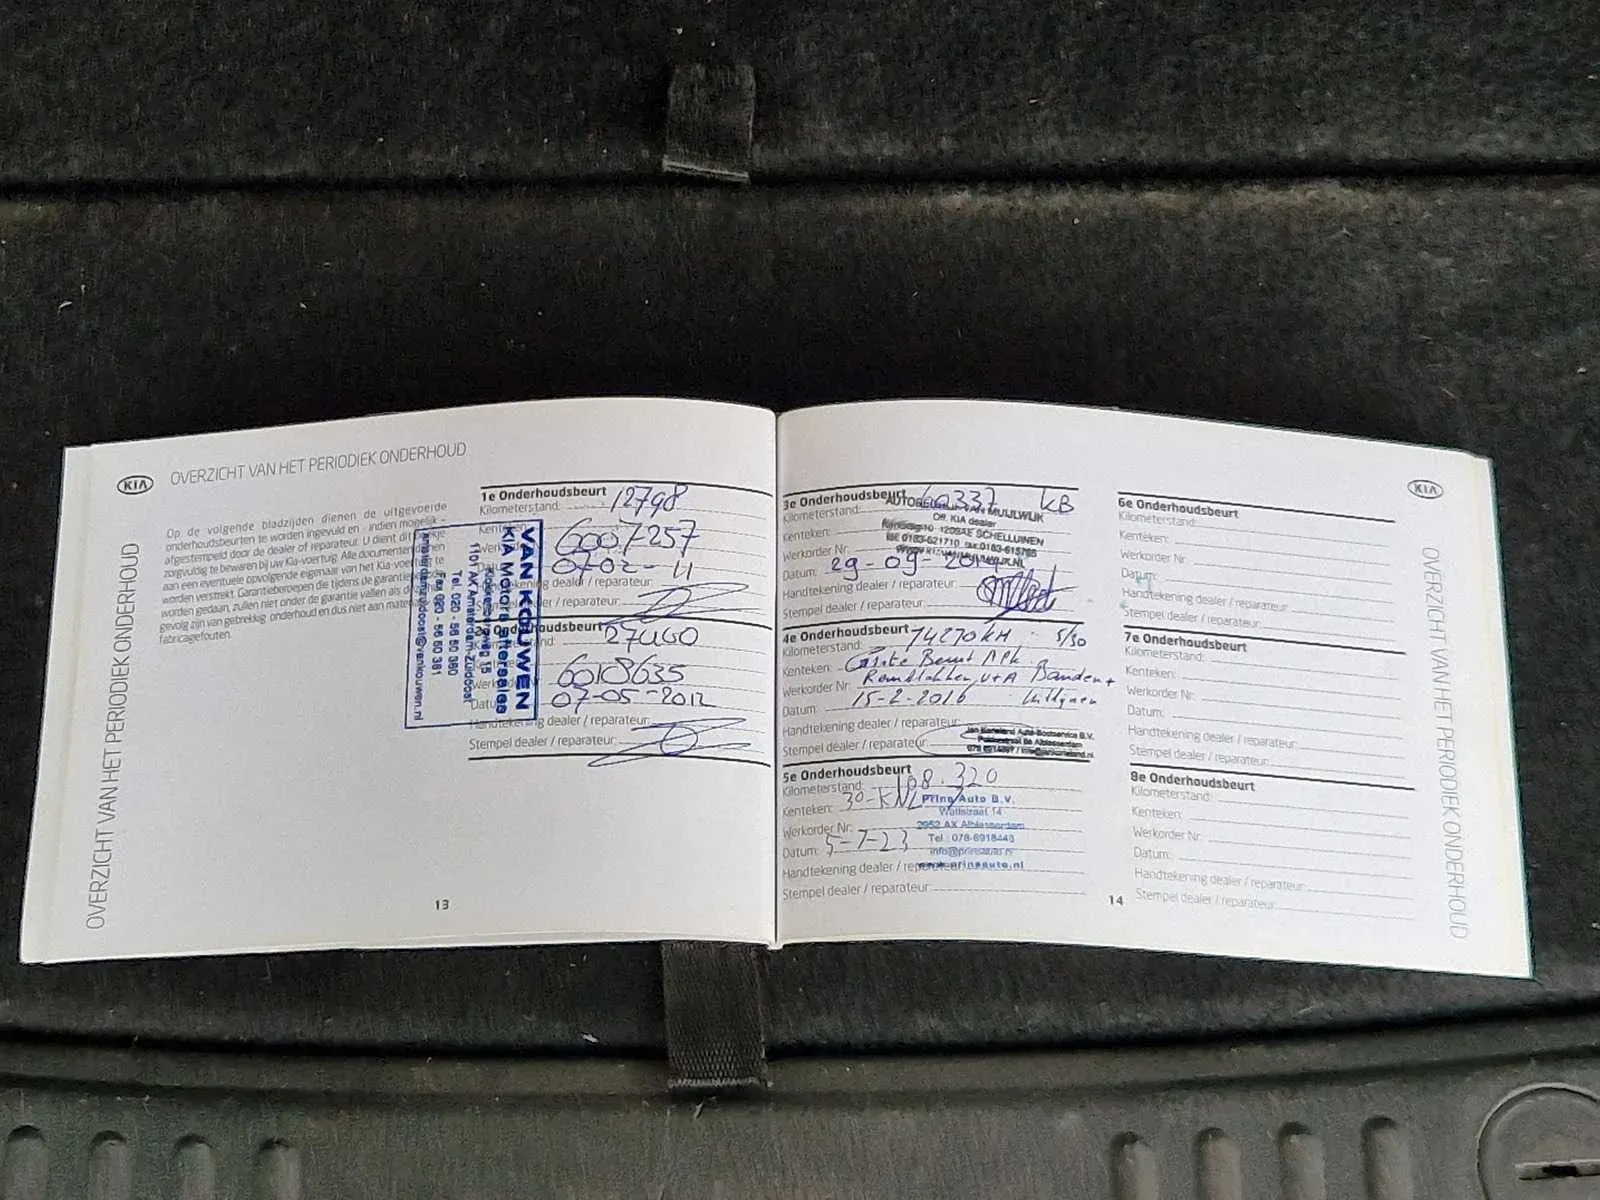 KIA
OVERZICHT VAN HET PERIODIEK ONDERHOUD
OVERZICHT VAN HET PERIODIEK ONDERHOUD
Op de volgende bladzijden dienen de uitgevoerde
onderhoudsbeurten te worden ingevuld en - indien mogelijk -
afgestempeld door de dealer of reparateur. U dient dit
zorgvuldig te bewaren bij uw Kia-voertuig. Alle documenten
aan een eventuele opvolgende eigenaar van het Kia-voertuig te
worden verstrekt. Garantieberoepen die tijdens de garantie
worden gedaan, zullen niet onder de garantie vallen als
gevolg zijn van gebrekkig onderhoud en dus niet aan
fabricagefouten.
VAN KOUWEN
KIA Motors aftersales
1101 AK Amsterdam-Zuidoost
Tel 020 - 56 50 360
Fax 020 - 56 50 361
1e Onderhoudsbeurt
Kilometerstand: 12798
6007257
0702-11
dealer / reparateur:
dealer / reparateur:
Onderhoudsbeurt
27460
6018635
07-05-2012
Handtekening dealer / reparateur:
Stempel dealer / reparateur:
13
3e Onderhoudsbeurt 60337 KB
Kilometerstand:
Kenteken:
Werkorder Nr:
Datum: 29-09-201
Handtekening dealer / reparateur:
Stempel dealer / reparateur:
Off. KIA dealer
SCHELLUINEN
4e Onderhoudsbeurt 74270KM 5/30
Kilometerstand:
Kenteken: Beurt APK
Werkorder Nr: Remblokken V+A Banden +
Datum: 15-2-2016
Handtekening dealer / reparateur:
Stempel dealer / reparateur:
5e Onderhoudsbeurt
Kilometerstand: 108.320
Kenteken: 30-KNL
Werkorder Nr:
Datum: 5-7-23
Handtekening dealer /
Stempel dealer / reparateur:
Prins Auto B.V.
Wattstraat 14
2952 AX Alblasserdam
Tel.: 078-6918443
info@prinsauto.nl
www.prinsauto.nl
14
KIA
6e Onderhoudsbeurt
Kilometerstand:
Kenteken:
Werkorder Nr:
Datum:
Handtekening dealer / reparateur:
Stempel dealer / reparateur:
7e Onderhoudsbeurt
Kilometerstand:
Kenteken:
Werkorder Nr:
Datum:
Handtekening dealer / reparateur:
Stempel dealer / reparateur:
8e Onderhoudsbeurt
Kilometerstand:
Kenteken:
Werkorder Nr:
Datum:
Handtekening dealer / reparateur:
Stempel dealer / reparateur:
OVERZICHT VAN HET PERIODIEK ONDERHOUD